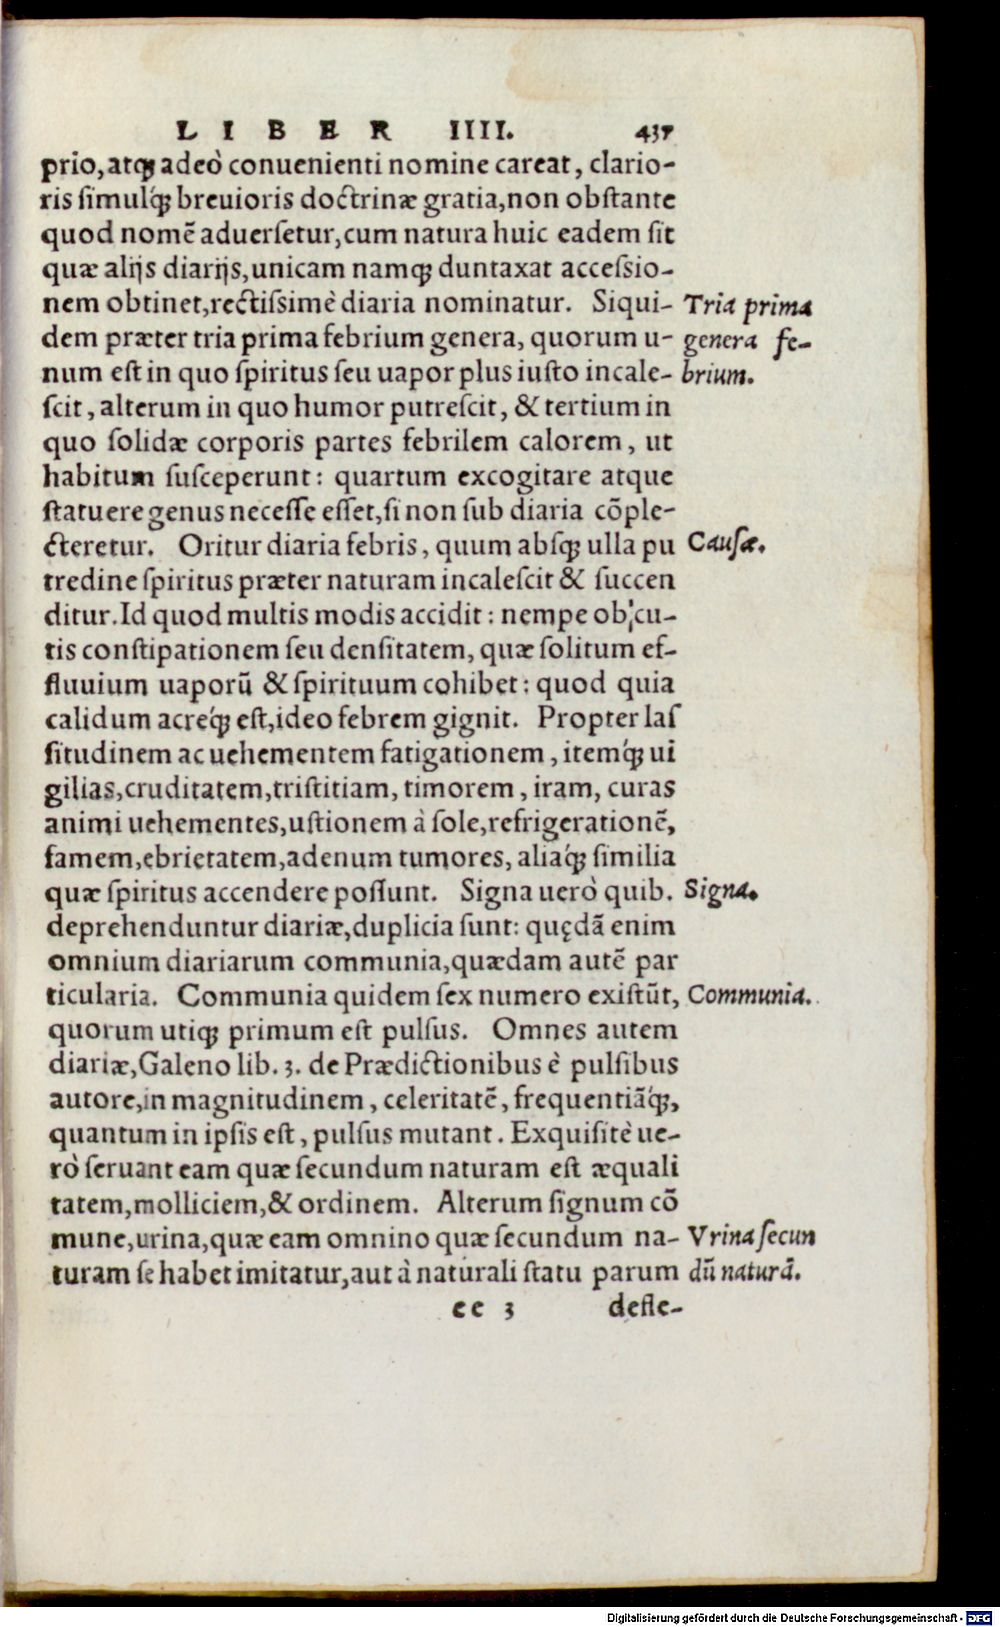 LIBER IIII. 437
prio,atq́; adeò conuenienti nomine careat, clario-
ris simulq́; breuioris doctrinæ gratia,non obstante
quod nomē aduersetur,cum natura huic eadem sit
quæ alijs diarijs,unicam namq; duntaxat accessio-
nem obtinet,rectissimè diaria nominatur. Siqui-
Tria prima
dem præter tria prima febrium genera, quorum u-
genera fe-
num est in quo spiritus seu uapor plus iusto incale-
brium.
scit, alterum in quo humor putrescit, & tertium in
quo solidæ corporis partes febrilem calorem, ut
habitum susceperunt: quartum excogitare atque
statuere genus necesse esset,si non sub diaria cōple-
cteretur. Oritur diaria febris, quum absq; ulla pu
Causæ.
tredine spiritus præter naturam incalescit & succen
ditur.Id quod multis modis accidit: nempe ob cu-
tis constipationem seu densitatem, quæ solitum ef-
fluuium uaporū & spirituum cohibet: quod quia
calidum acreq́; est,ideo febrem gignit. Propter las
situdinem ac uehementem fatigationem, itemq́; ui
gilias,cruditatem,tristitiam, timorem, iram, curas
animi uehementes,ustionem à sole,refrigerationē,
famem,ebrietatem,adenum tumores, aliaq́; similia
quæ spiritus accendere possunt. Signa uerò quib.
Signa.
deprehenduntur diariæ,duplicia sunt: quędā enim
omnium diariarum communia,quædam autē par
ticularia. Communia quidem sex numero existūt,
Communia.
quorum utiq; primum est pulsus. Omnes autem
diariæ,Galeno lib. 3. de Prædictionibus è pulsibus
autore,in magnitudinem, celeritatē, frequentiāq́;,
quantum in ipsis est, pulsus mutant. Exquisitè ue-
rò seruant eam quæ secundum naturam est æquali
tatem,molliciem,& ordinem. Alterum signum cō
mune,urina,quæ eam omnino quæ secundum na-
Vrina secun
turam se habet imitatur,aut à naturali statu parum
dū naturā.
ee 3 defle-
Digitalisierung gefördert durch die Deutsche Forschungsgemeinschaft - DFG